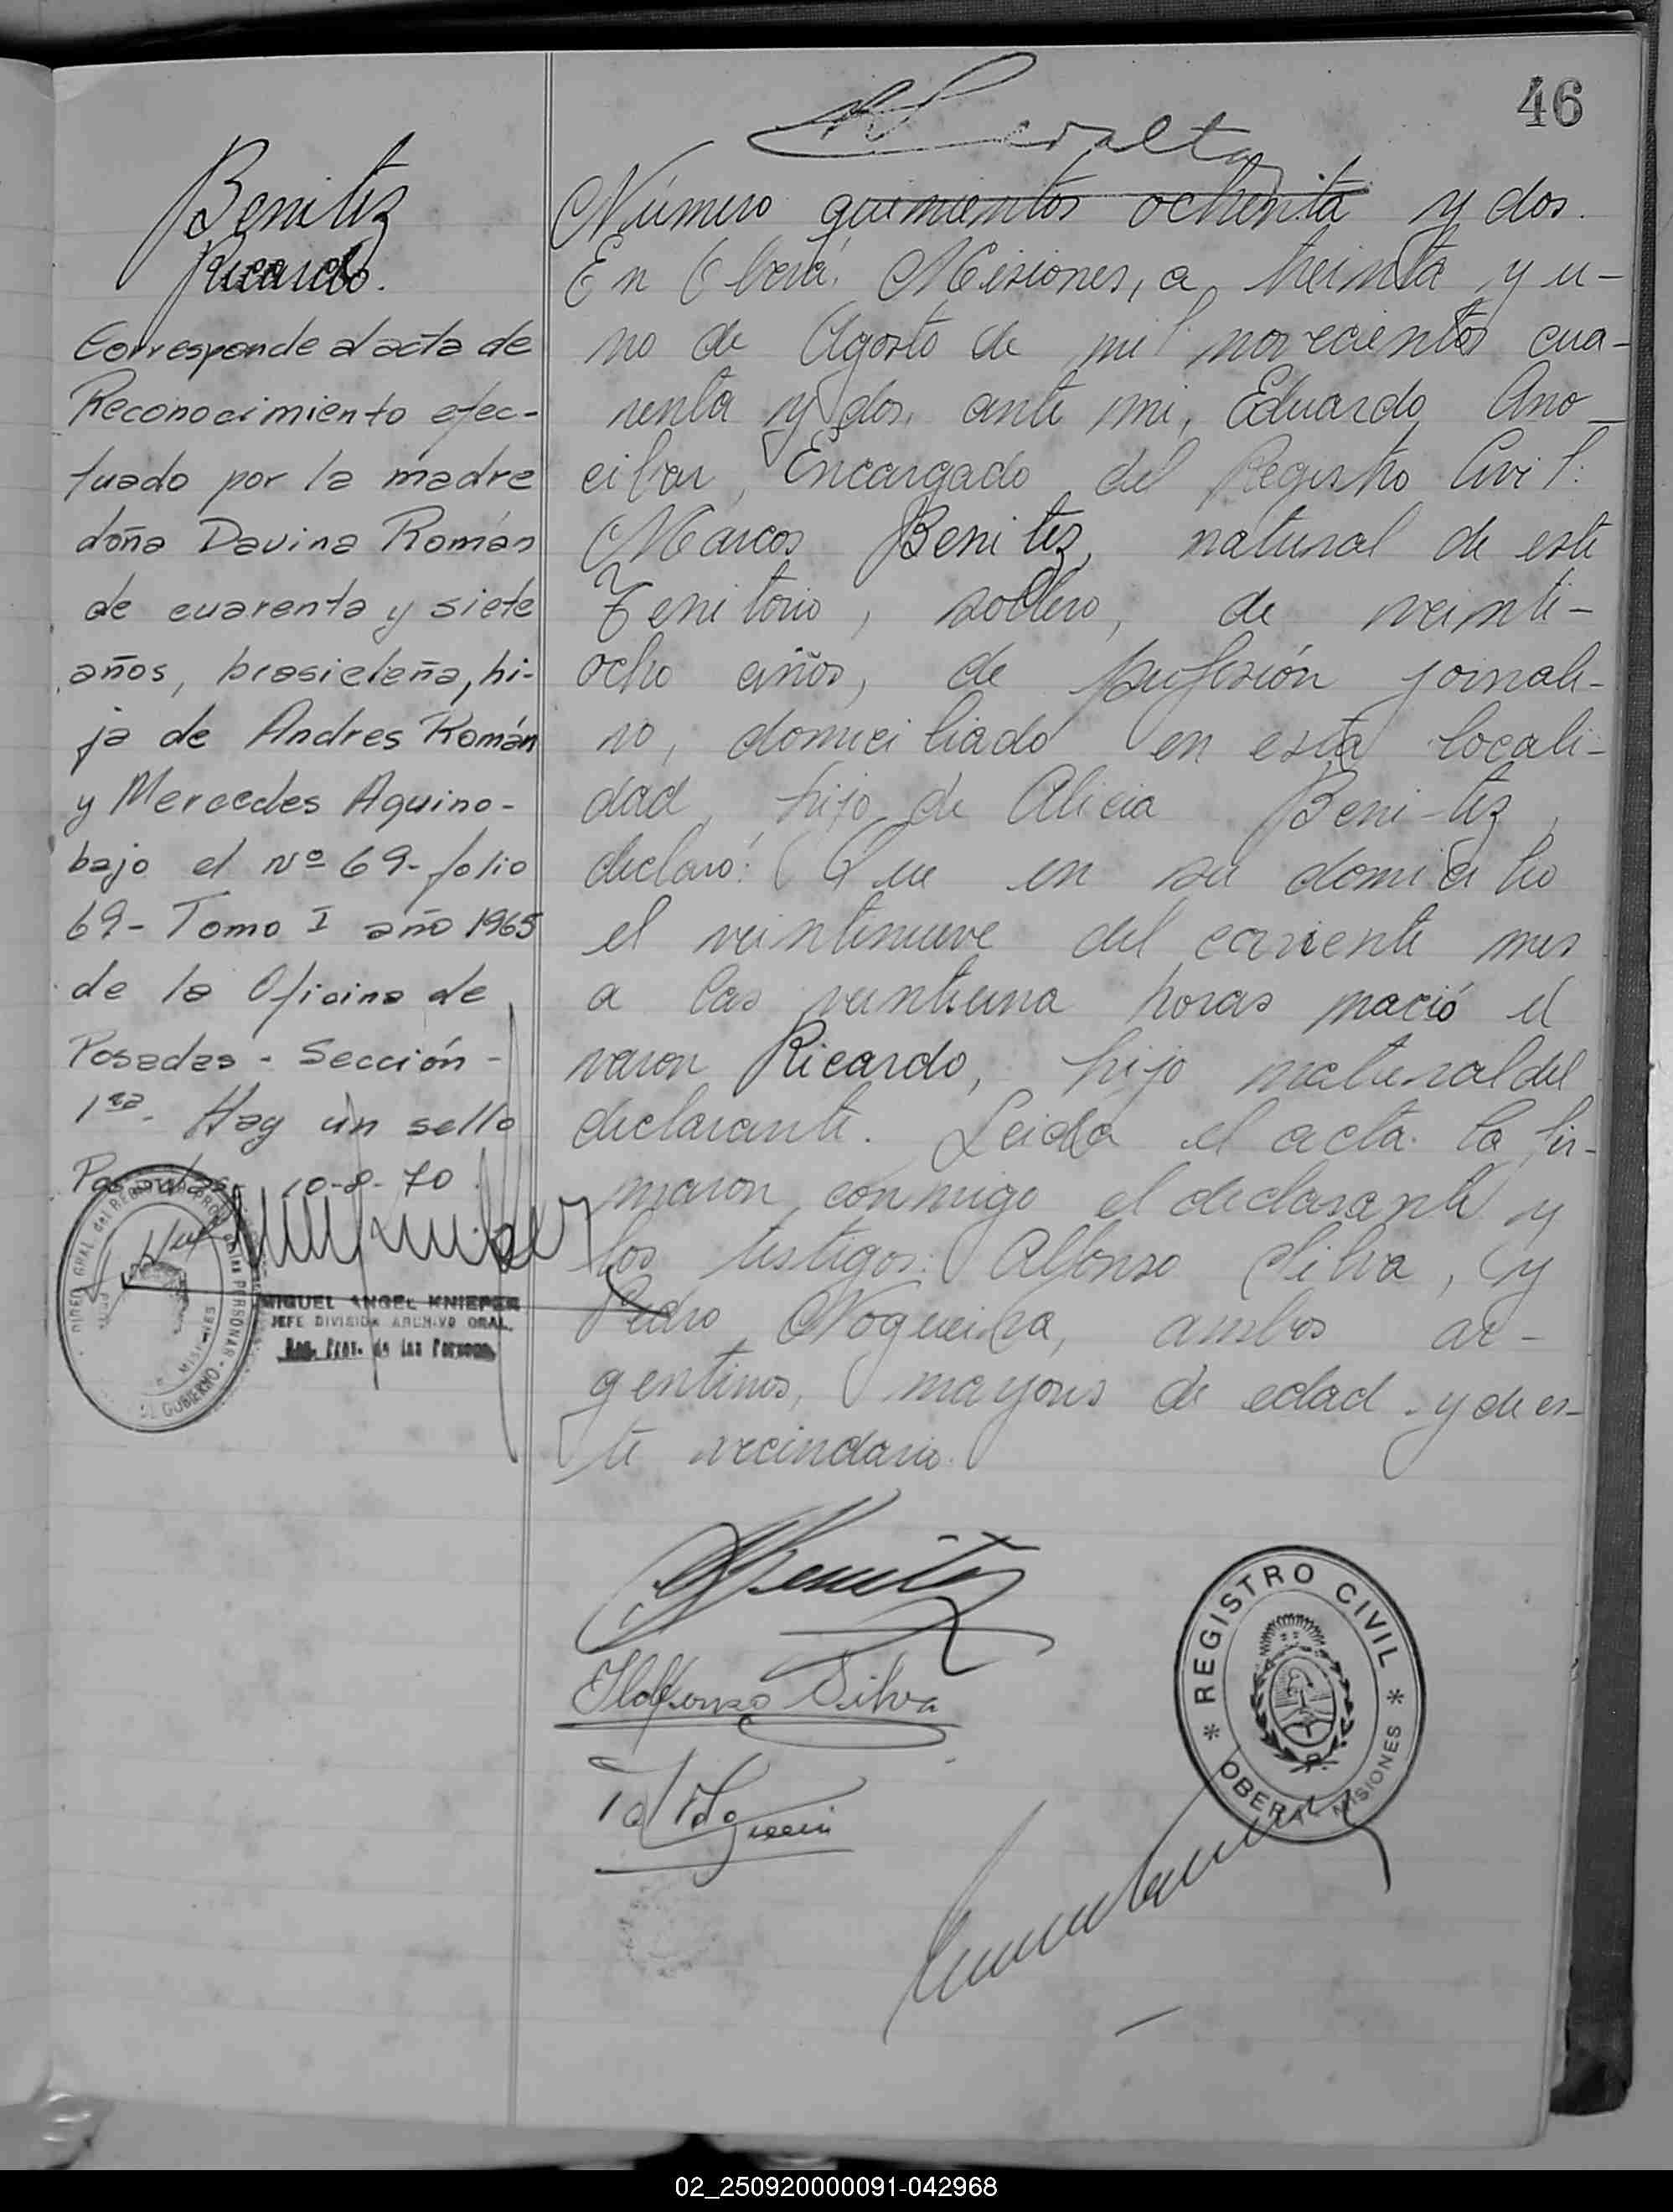 46
Benitez
Ricardo.
Corresponde al acta de
Reconocimiento efec-
tuado por la madre
doña Davina Román
de cuarenta y siete
años, brasieleña, hi-
ja de Andres Román
y Mercedes Aquino-
bajo el Nº 69- folio
69- Tomo I año 1965
de la Oficina de
Posadas - Sección -
1ra. Hay un sello
Posadas 10-8-70.
MIGUEL ANGEL KNIEPER
JEFE DIVISION ARCHIVO GRAL.
Reg. Prov. de las Personas
Número quinientos ochenta y dos.
En Oberá, Misiones, a treinta y u-
no de Agosto de mil novecientos cua-
renta y dos, ante mi, Eduardo Ano-
cibar, Encargado del Registro Civil:
Marcos Benitez, natural de este
Territorio, soltero, de veinti-
ocho años, de profesión jornale-
ro, domiciliado en esta locali-
dad, hijo de Alicia Beni-tez,
declaró: Que en su domicilio
el veintinueve del corriente mes
a las veintiuna horas nació el
varon Ricardo, hijo natural del
declarante. Leida el acta la fir-
maron conmigo el declarante y
los testigos: Alfonso Silva, y
Pedro Nogueira, ambos ar-
gentinos, mayores de edad y de es-
te vecindario.
Benitez
Ildefonso Silva
REGISTRO CIVIL
OBERA - MISIONES
02_250920000091-042968